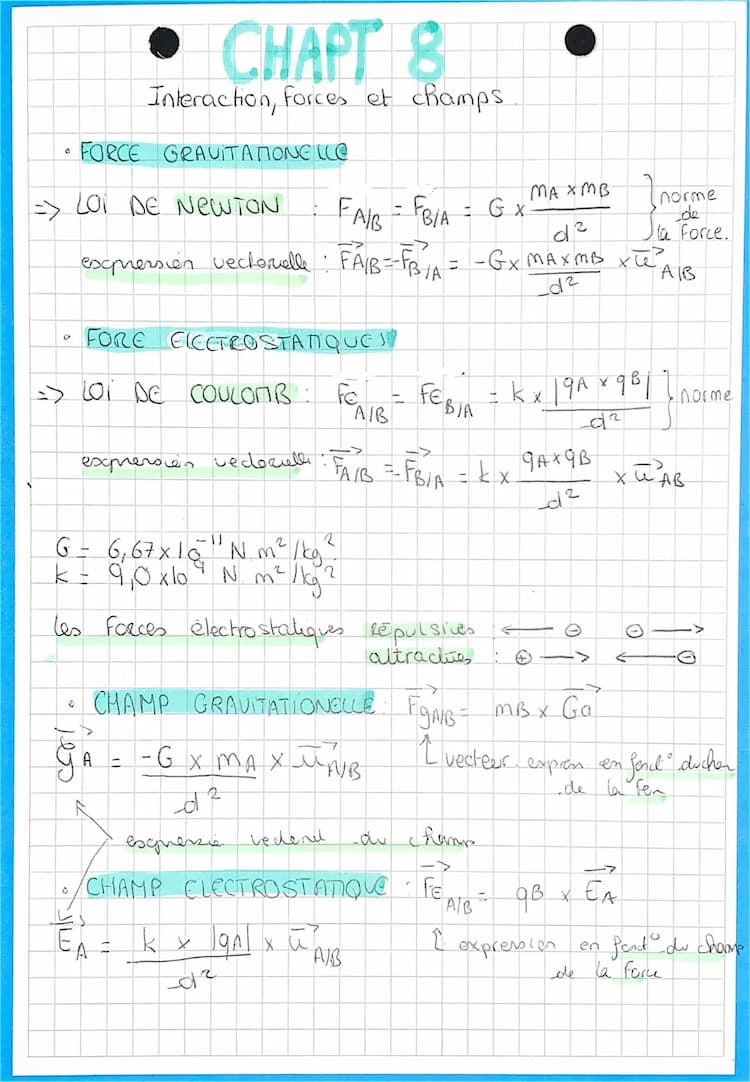 CHAPT 8
Interaction, forces et champs.
• FORCE GRAVITATIONELLE
=> LOI DE NEWTON : F A/B = F B/A = G × (mA × mB)/d² } norme de la force.
expression vectorielle : F⃗ A/B = -F⃗ B/A = -G × (mA × mB)/d² × u⃗ A/B
• FORE ELECTROSTATIQUES
=> LOI DE COULOMB : Fe A/B = Fe B/A = k × |qA × qB|/d² } norme
expression vectorielle : F⃗ A/B = -F⃗ B/A = k × (qA × qB)/d² × u⃗ AB
G = 6,67 × 10⁻¹¹ N m²/kg²
k = 9,0 × 10⁹ N m²/kg²
les forces électrostatiques répulsives : ← ⊖ ⊖ →
attractives : ⊕ → ← ⊖
• CHAMP GRAVITATIONELLE : F⃗g A/B = mB × G⃗a
G⃗A = (-G × mA)/d² × u⃗ A/B
↑ vecteur en fonct° du
de la
du champ
• CHAMP ELECTROSTATIQUE : F⃗e A/B = qB × E⃗A
E⃗A = (k × |qA|)/d² × u⃗ A/B
↑ expression en fonct° du champ
de la force